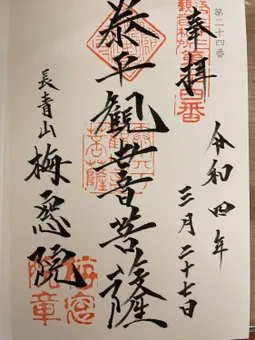 第二十四番
奉拝
令和四年
三月二十七日
泰平觀世音菩薩
長青山
梅窓院
梅窓院章